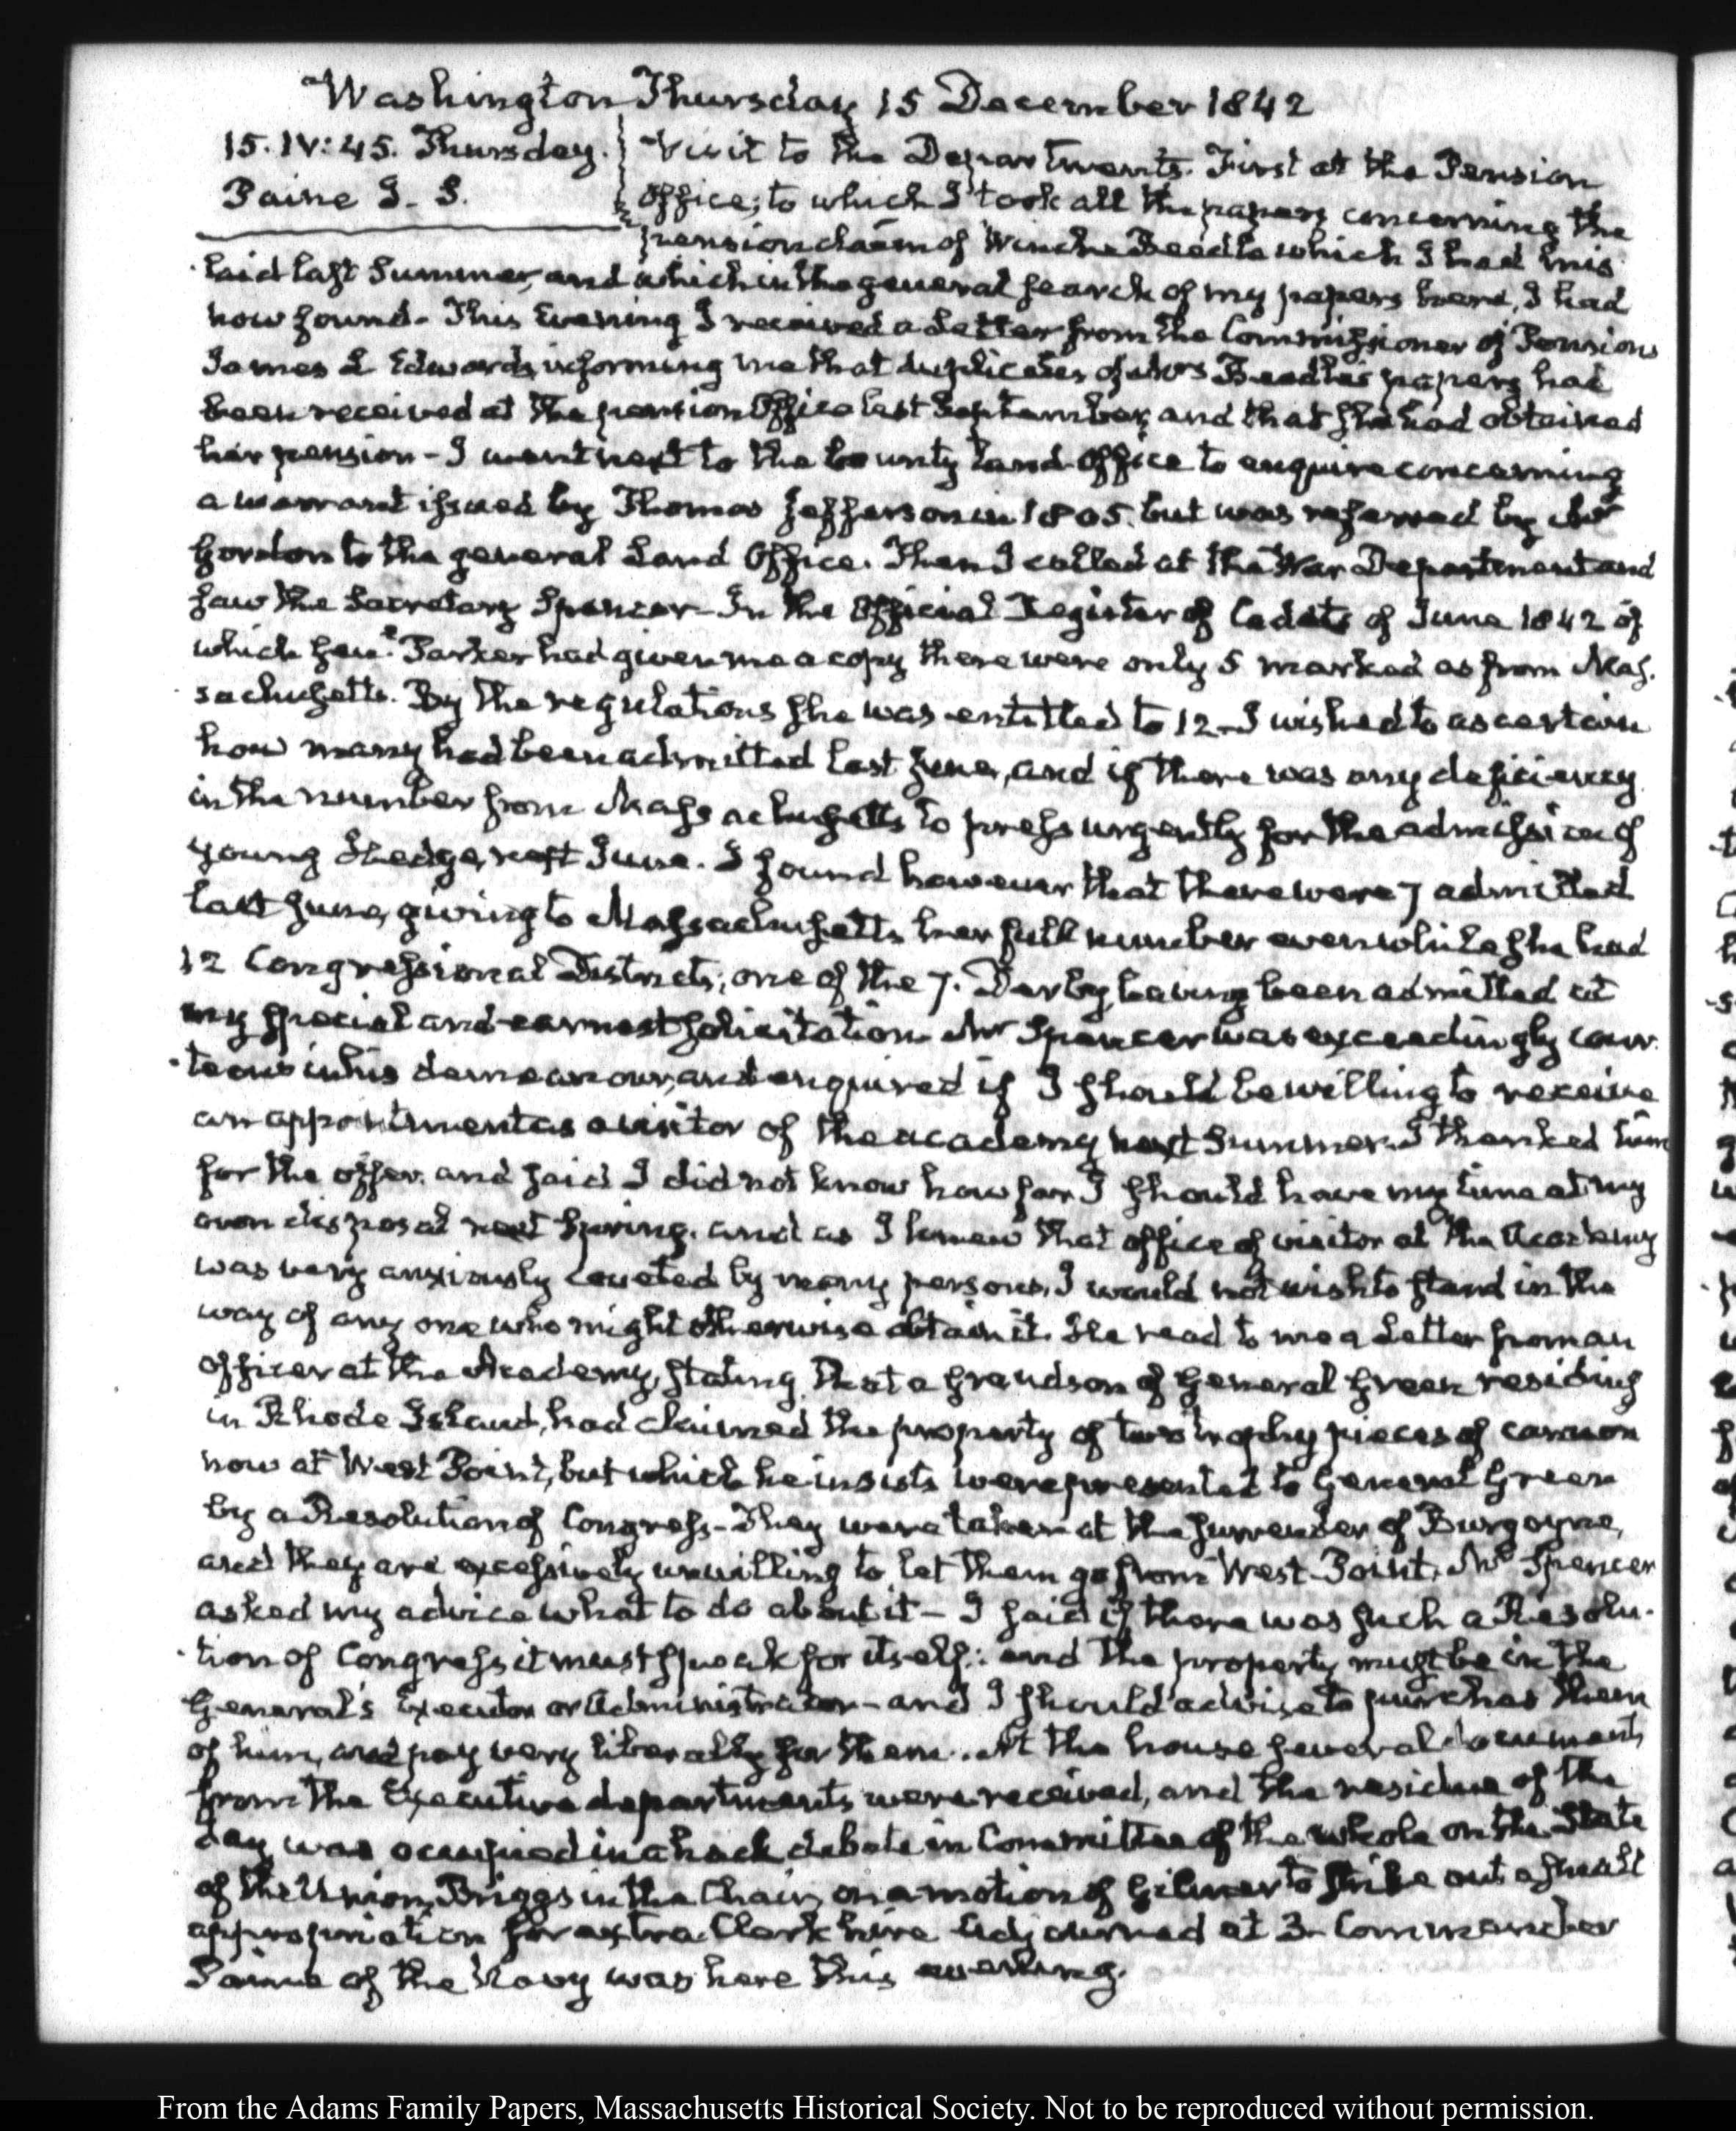 Washington Thursday 15 December 1842
15. IV:45. Thursday.
Paine J. S.
Visit to the Departments. First at the Pension
Office; to which I took all the papers concerning the
pension claim of Beedle which I had mis
laid last Summer, and which in the general search of my papers here, I had
now found. This Evening I received a Letter from the Commissioner of Pensions
James L Edwards, informing me that duplicates of Mrs Beedles papers had
been received at the pension Office last September, and that she had obtained
her pension - I went next to the bounty land Office to enquire concerning
a warrant issued by Thomas Jefferson in 1805. but was referred by Mr
Gordon to the general Land Office. Then I called at the War Department and
saw the Secretary Spencer - In the Official Register of Cadets of June 1842 of
which Parker had given me a copy there were only 5 marked as from Mas-
sachusetts. By the regulations she was entitled to 12 - I wished to ascertain
how many had been admitted last June, and if there was any deficiency
in the number from Massachusetts to press urgently for the admission of
young next June. I found however that there were 7 admitted
last June, giving to Massachusetts her full number even while she had
12 Congressional Districts; one of the 7. Darby, having been admitted at
my special and earnest solicitation. Mr Spencer was exceedingly cour-
teous in his demeanour, and enquired if I should be willing to receive
an appointment as a visitor of the academy next Summer. I thanked him
for the offer, and said I did not know how far I should have my time at my
own disposal next Spring, and as I knew that office of visitor at the Academy
was very anxiously coveted by many persons, I would not wish to stand in the
way of any one who might otherwise obtain it. He read to me a Letter from an
officer at the Academy, stating that a grandson of General Green residing
in Rhode Island, had claimed the property of two trophy pieces of cannon
now at West Point, but which he insists were presented to General Green
by a Resolution of Congress - They were taken at the surrender of Burgoyne,
and they are excessively unwilling to let them go from West-Point. Mr Spencer
asked my advice what to do about it - I said if there was such a Resolu-
tion of Congress it must speak for itself: and the property must be in the
General's Executor or Administrator - and I should advise to purchas them
of him, and pay very liberally for them. At the house several documents
from the Executive departments were received, and the residue of the
day was occupied in a hack debate in Committee of the whole on the State
of the Union, Briggs in the Chair, on a motion of Gilmer to strike out a small
appropriation for extra Clerk hire Adjourned at 3 - Commander
Paine of the Navy was here this evening.
From the Adams Family Papers, Massachusetts Historical Society. Not to be reproduced without permission.